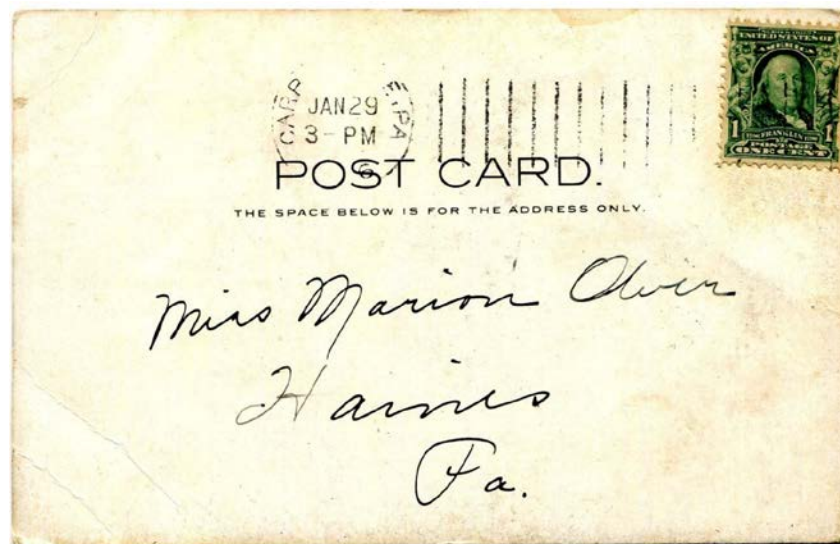 JAN 29
3-PM
PA
UNITED STATES OF
AMERICA
1
FRANKLIN
POSTAGE
ONE CENT
POST CARD.
THE SPACE BELOW IS FOR THE ADDRESS ONLY.
Miss Marion Olver
Haines
Pa.